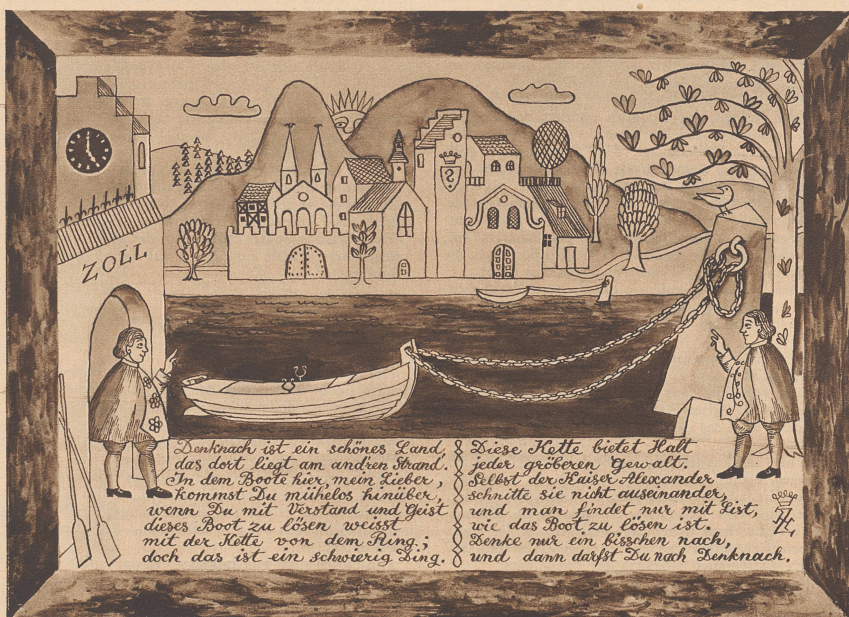 ZOLL
Denknach ist ein schönes Land,
das dort liegt am andren Strand.
In dem Boote hier, mein Lieber,
kommst Du mühelos hinüber,
wenn Du mit Verstand und Geist
dieses Boot zu lösen weisst
mit der Kette von dem Ring;
doch das ist ein schwierig Ding.
Diese Kette bietet Halt
jeder gröberen Gewalt.
Selbst der Kaiser Alexander
schnitte sie nicht auseinander,
und man findet nur mit List,
wie das Boot zu lösen ist.
Denke nur ein bisschen nach,
und dann darfst Du nach Denknach.